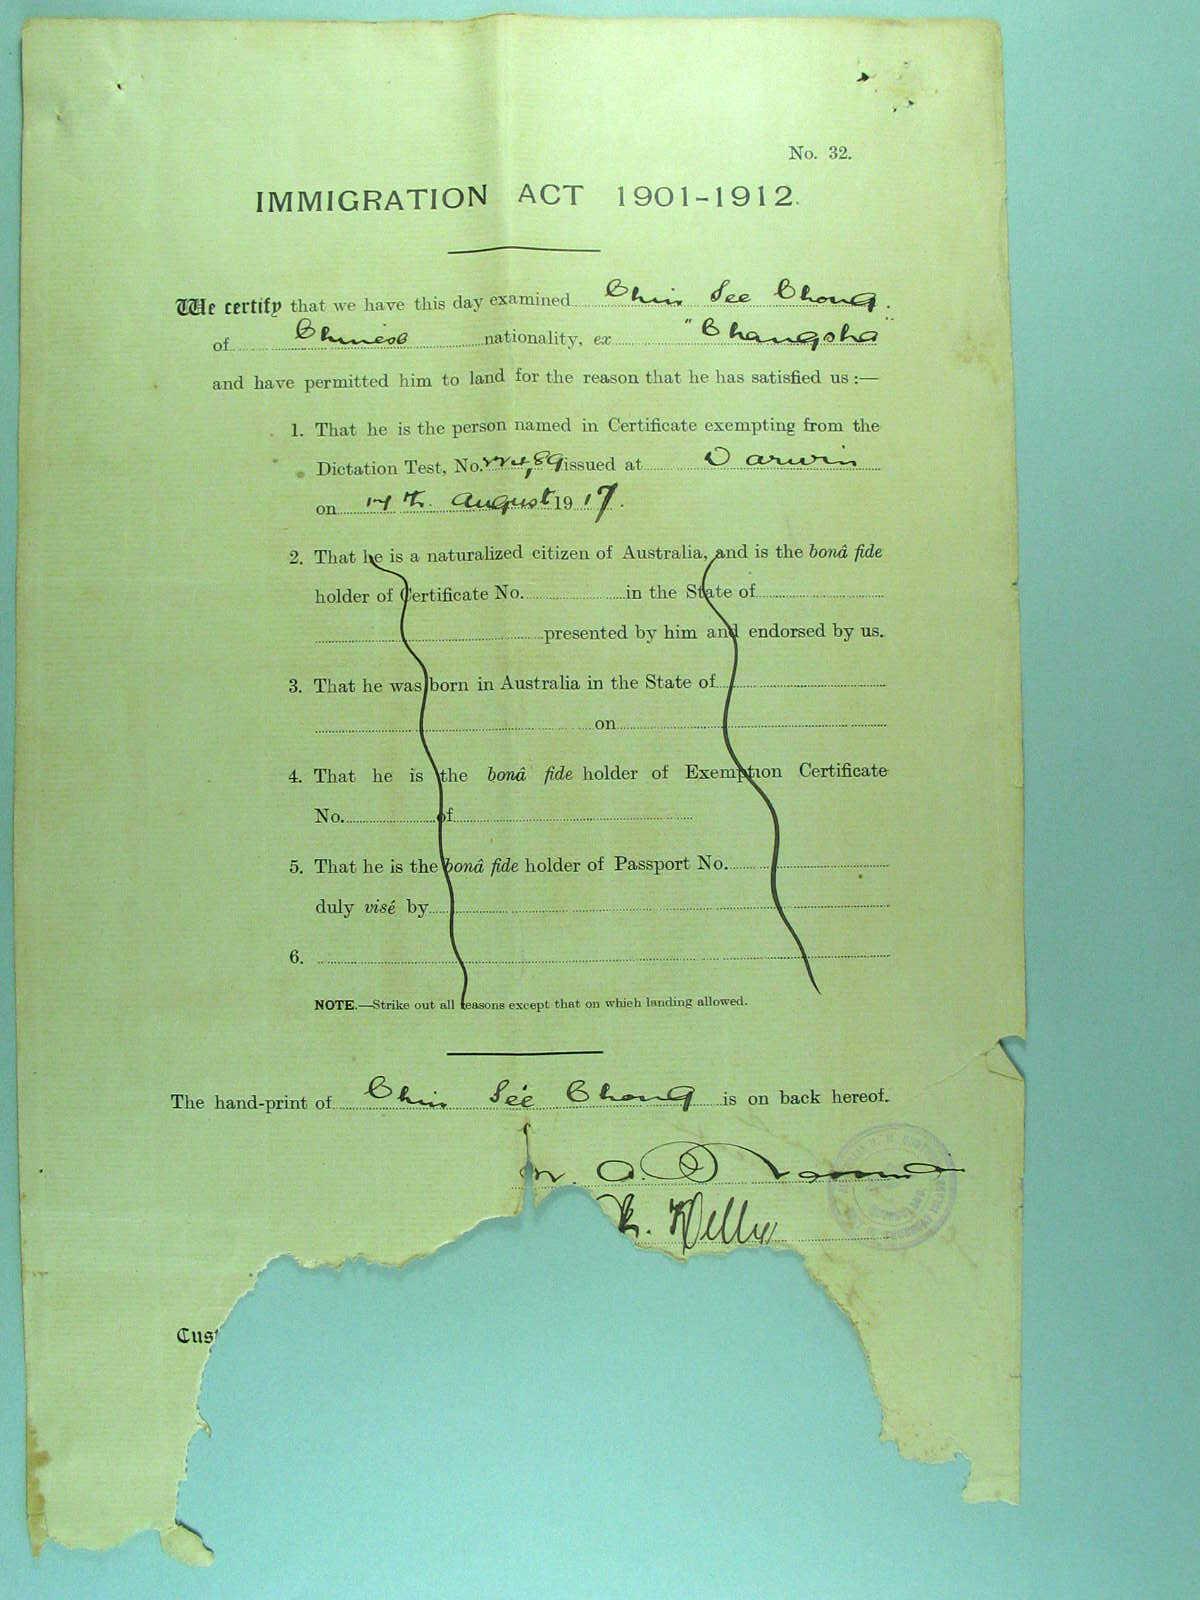 No. 32.
IMMIGRATION ACT 1901-1912.
We certify that we have this day examined Chin See Chong.
of Chinese nationality, ex "Changsha"
and have permitted him to land for the reason that he has satisfied us :—
1. That he is the person named in Certificate exempting from the
Dictation Test, No. issued at Darwin
on 14th August 1917.
2. That he is a naturalized citizen of Australia, and is the bonâ fide
holder of Certificate No. in the State of
presented by him and endorsed by us.
3. That he was born in Australia in the State of
on
4. That he is the bonâ fide holder of Exemption Certificate
No. of
5. That he is the bonâ fide holder of Passport No.
duly visé by
6.
NOTE.—Strike out all reasons except that on which landing allowed.
The hand-print of Chin See Chong is on back hereof.
Cust